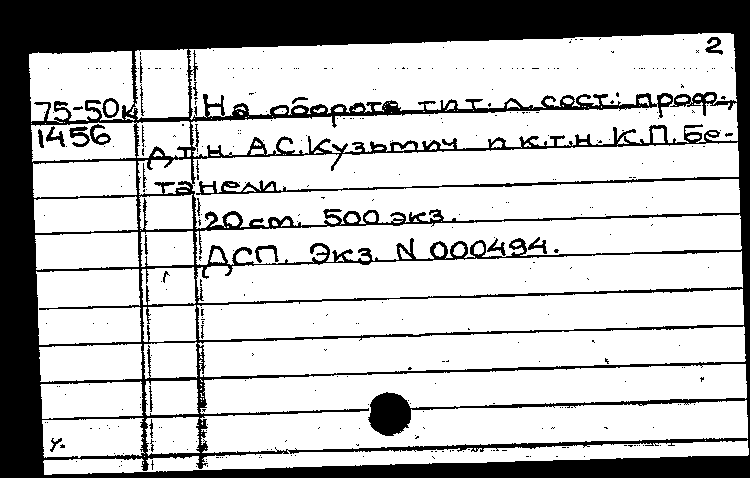 2
75-50к На обороте тит. л. сост.: проф.,
1456 д.т.н. А.С.Кузьмич и к.т.н. К.П.Бе-
танели.
20 см. 500 экз.
ДСП. Экз. N 000494.